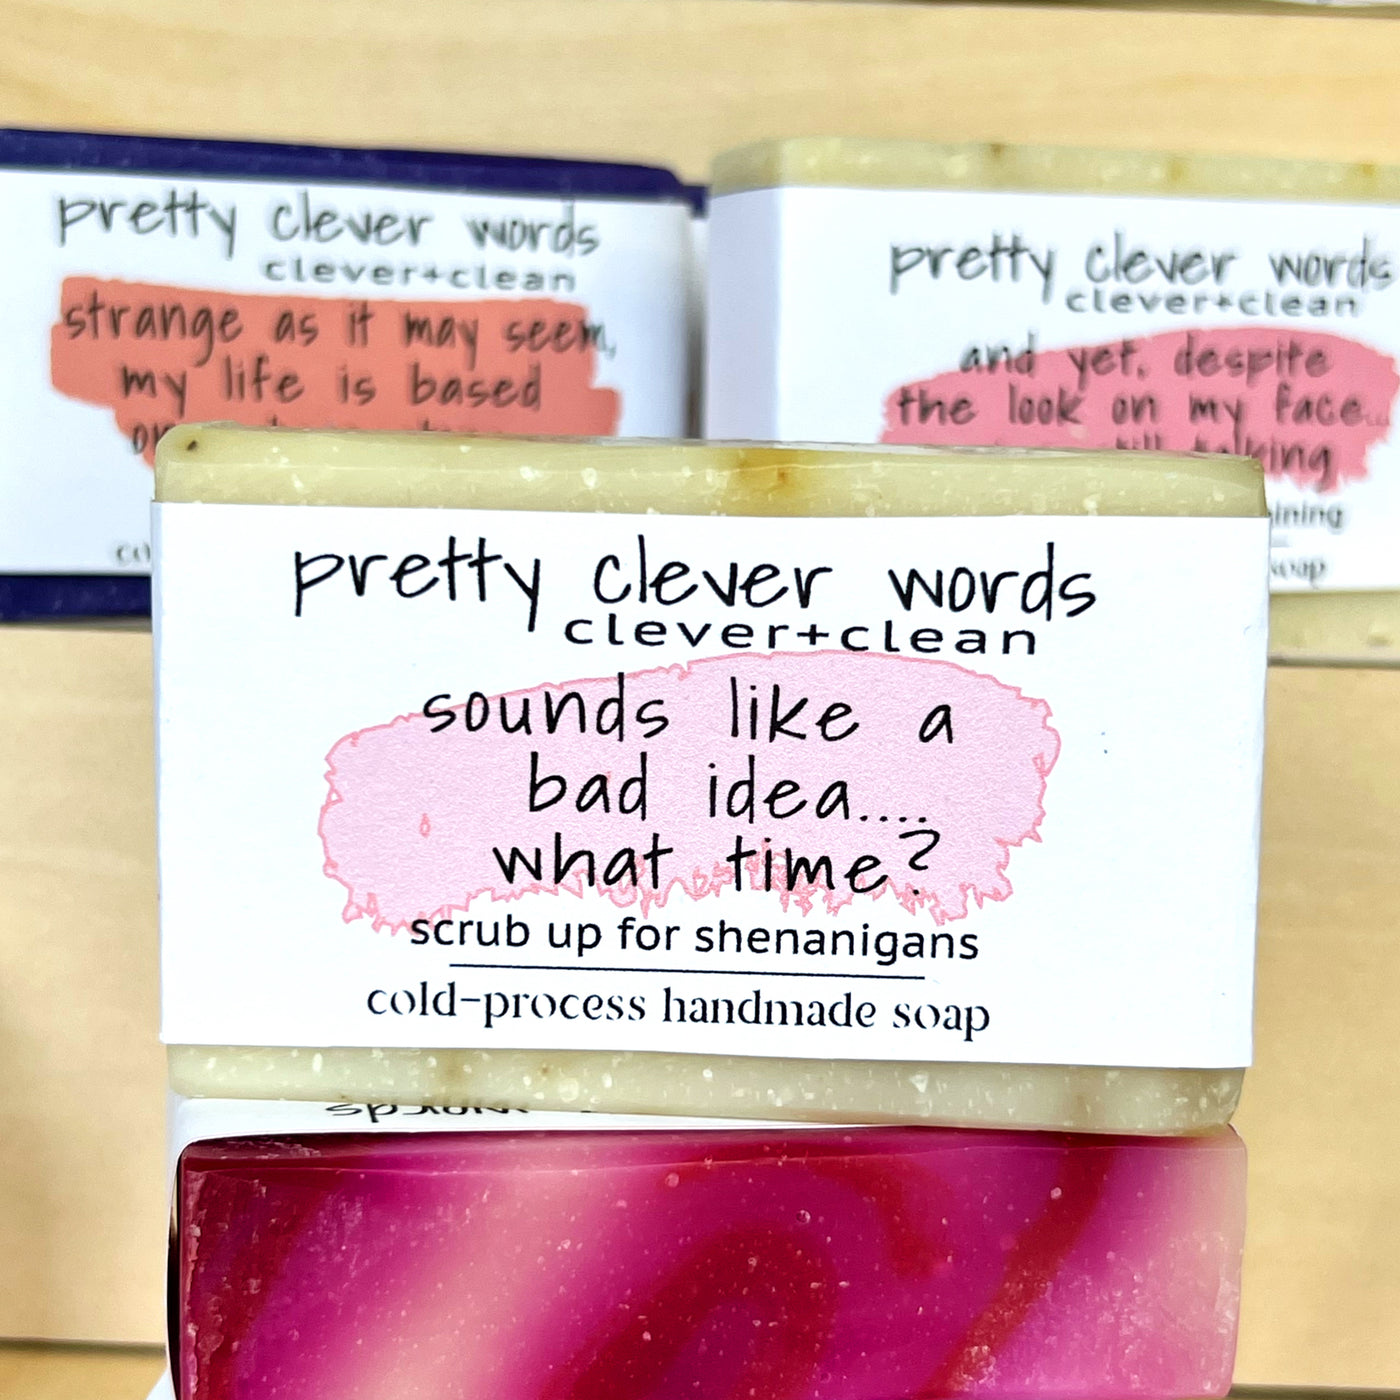 pretty clever words
clever+clean
strange as it may seem,
my life is based
pretty clever words
clever+clean
and yet, despite
the look on my face...
talking
pretty clever words
clever+clean
sounds like a
bad idea....
what time?
scrub up for shenanigans
cold-process handmade soap